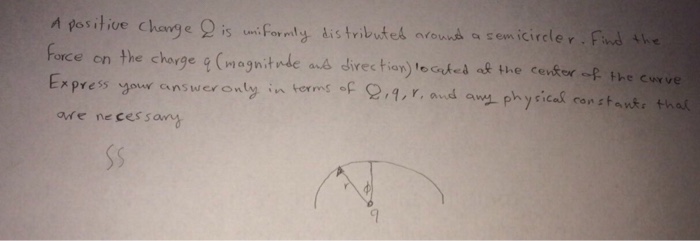 A positive charge Q is uniformly distributed around a semicircler. Find the
force on the charge q (magnitude and direction) located at the center of the curve
Express your answer only in terms of Q, q, r, and any physical constants that
are necessary
SS
r
ϕ
q